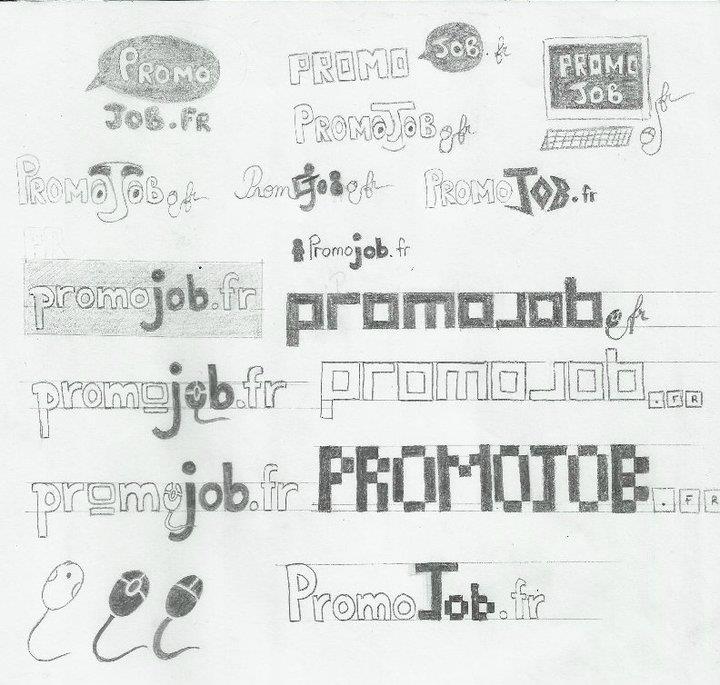 PROMO
JOB.FR
PROMO JOB.fr
PROMO
JOB
fr
PROMOJOB.fr
PROMOJOB.fr
PromoJOB.fr
PROMOJOB.fr
Promojob.fr
promojob.fr
promojob.fr
promojob.fr
promojob.FR
promojob.fr
PROMOJOB.FR
PromoJob.fr